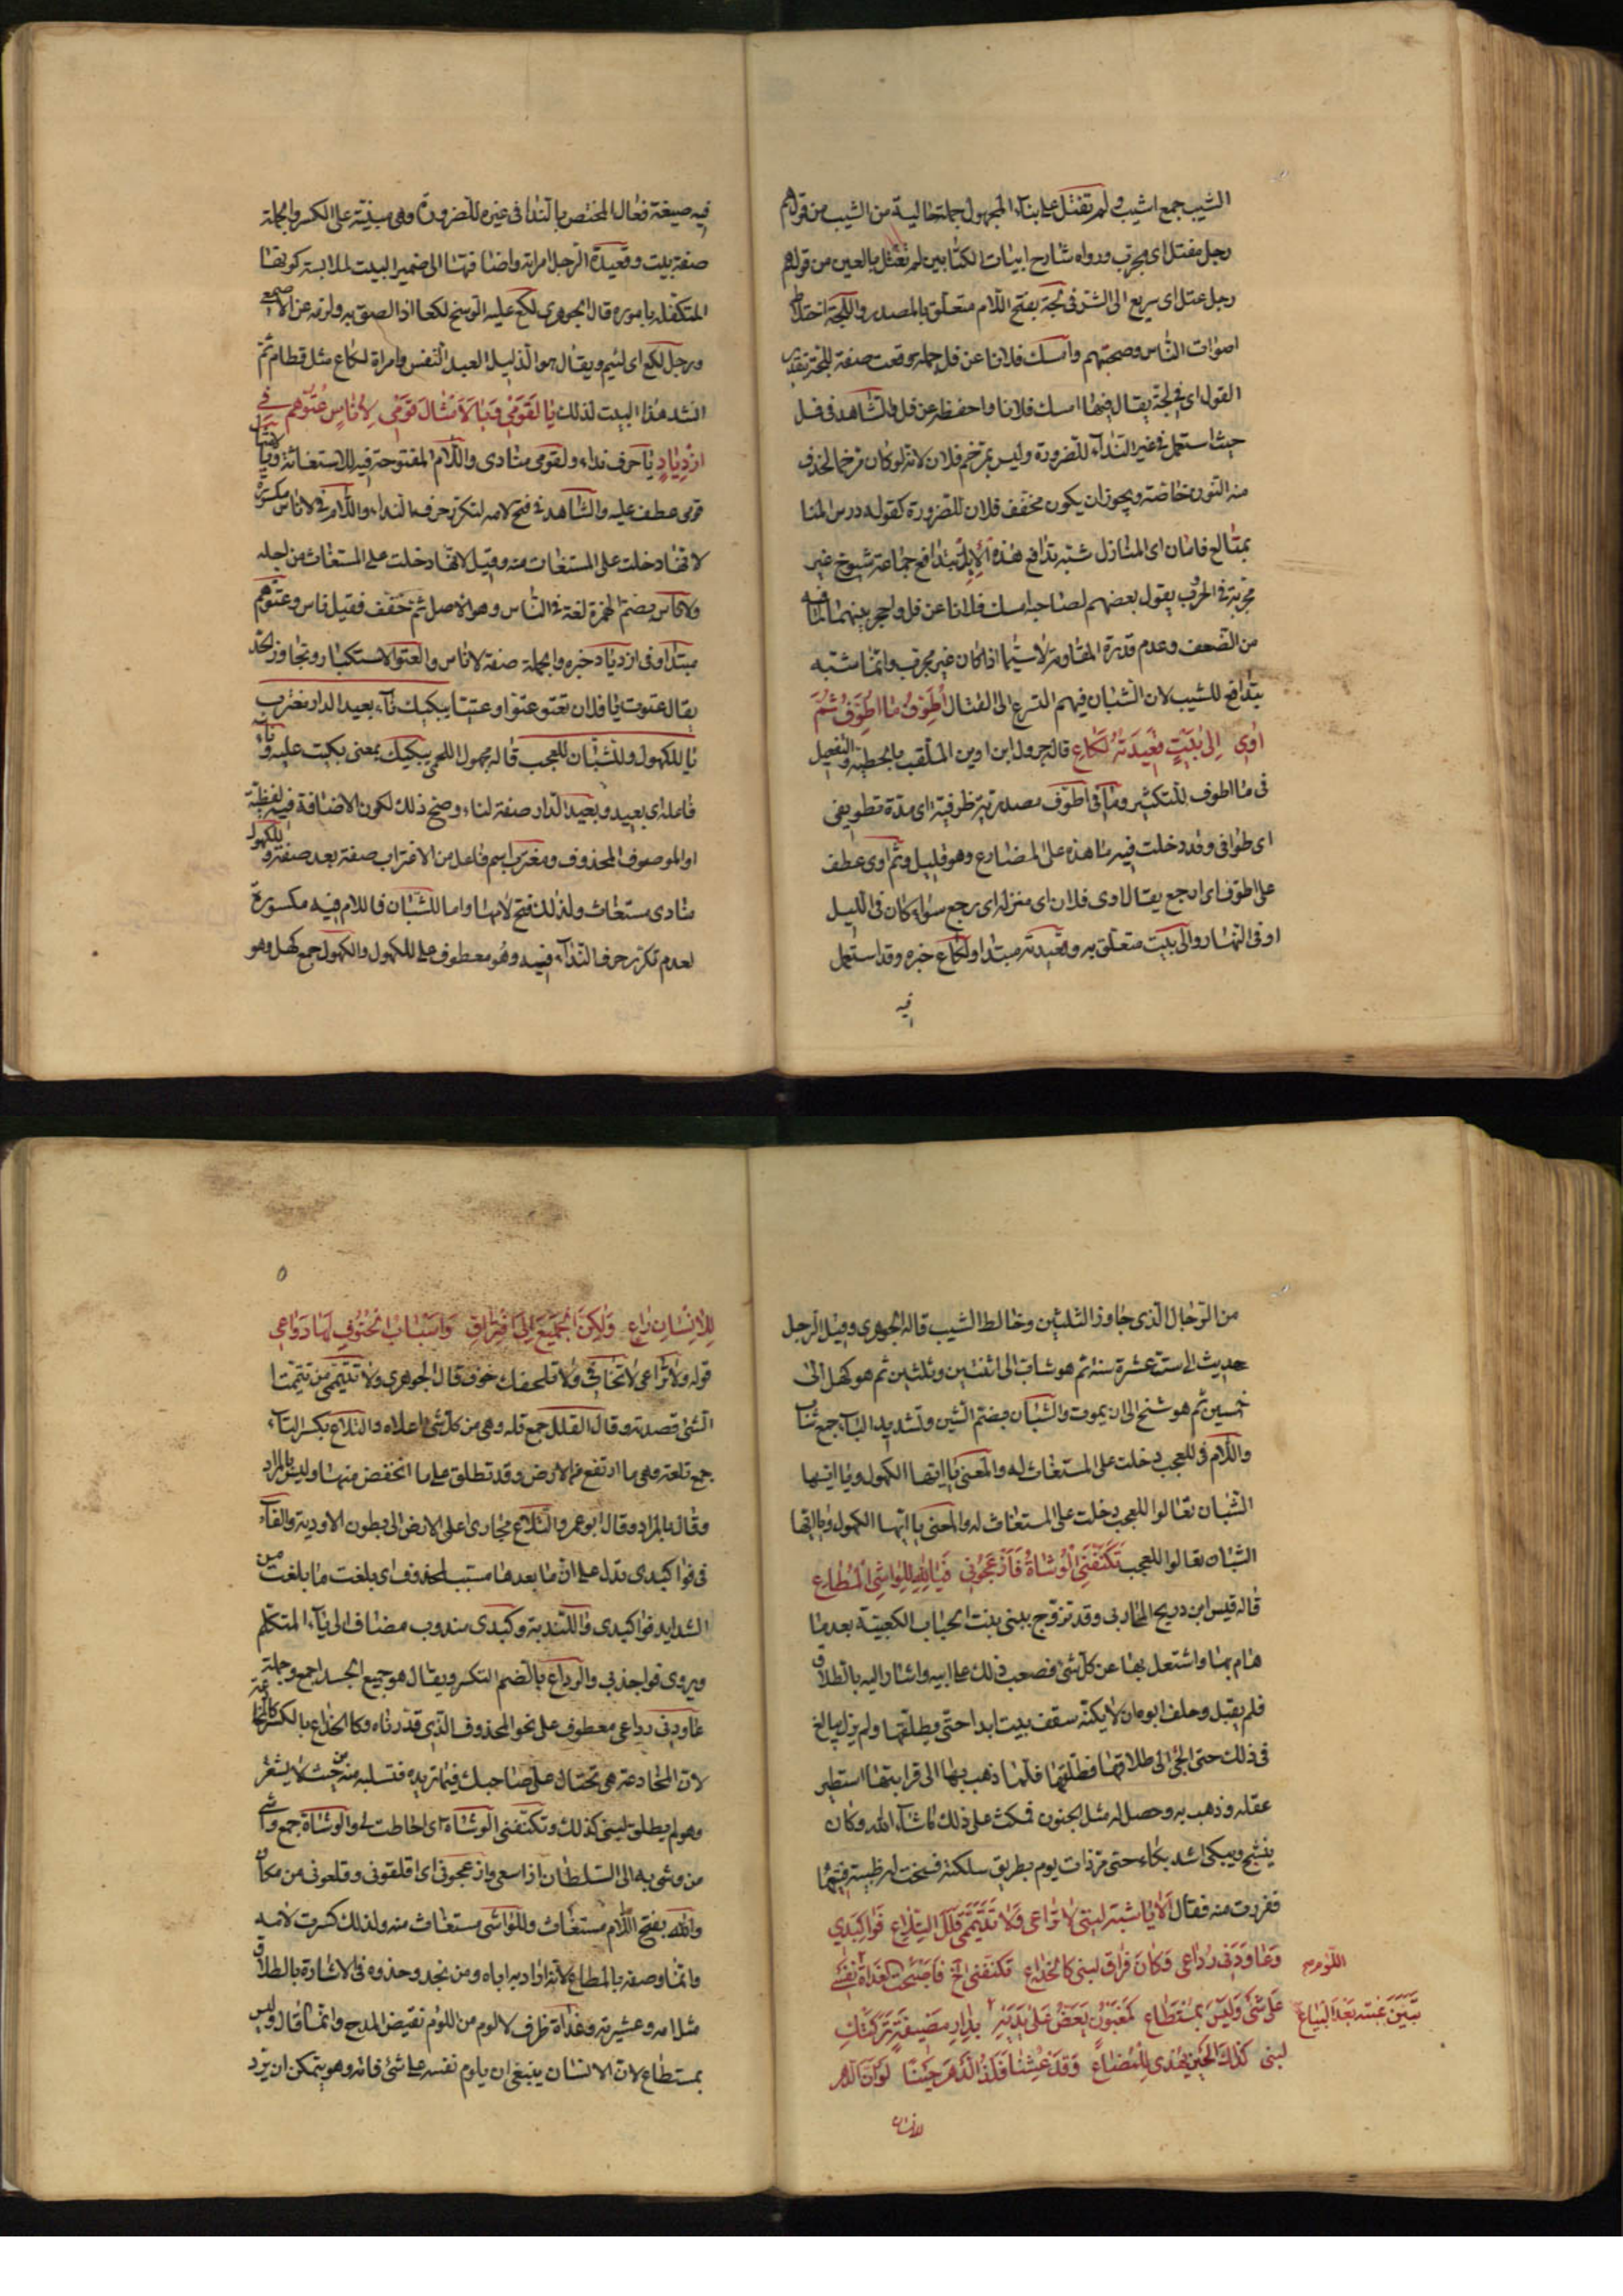 الشيب جمع اشيب ولم تقتل على بناء المجهول جملة حالية من الشيب من قولهم
رجل مقتل اى مجرب ورواه شارح ابيات الكتابين لم تعتل بالعين من قولهم
رجل عتل اى سريع الى الشر فى لجة بفتح اللام متعلق بالمصدر واللجة اختلاط
اصوات الناس وصحبتهم وامسك فلانا عن فل جملة وقعت صفة للجة بتقدير
القول اى فى لجة يقال فيها امسك فلانا واحفظه عن فل والشاهد فى فل
حيث استعمل فى غير النداء للضرورة وليس بترخيم فلان لانه لو كان مرخما لحذف
منه النون خاصة ويجوز ان يكون مخفف فلان للضرورة كقوله درس المنا
بمتالع فابان اى المنازل شبه تدافع هذه الابل بتدافع جماعة شيوخ غير
مجربة فى الحرب يقول بعضهم لصاحبه امسك فلانا عن فل واحجر بينهما لما فيه
من الضعف وعدم قدرة المقاومة لا سيما اذا كان غير مجرب وانما شبه
بتدافع للشيب لان الشبان فيهم التسرع الى القتال أُطَوِّفُ مَا أُطَوِّفُ ثُمَّ
اٰوِى إِلٰى بَيْتٍ قَعِيدَتُهُ لَكَاعِ قاله جرول ابن اوس الملقب بالحطيئة والتفعيل
فى ما اطوف للتكثير وما فى اطوف مصدرية ظرفية اى مدة تطويفى
اى طوافى وقد دخلت فيه ما هذه على المضارع وهو قليل وثم اوى عطف
على اطوف اى ارجع يقال اوى فلان اى منزله اى رجع سواء كان فى الليل
او فى النهار والى بيت متعلق به وقعيدته مبتدا ولكاع خبره وقد استعمل
فيه
فيه صيغة فعال المختص بالنداء فى غيره للضرورة وهى مبنية على الكسر والجملة
صفة بيت وقعيدة الرجل امراته واضافتها الى ضمير البيت لملابسة كونها
المتكفلة باموره قال الجوهرى لكع عليه الوسخ لكعا اذا لصق به ولزمه عن الاصمعى
ورجل لكع اى لئيم ويقال هو الذليل العبد النفس وامراة لكاع مثل قطام ثم
انشد هذا البيت لذلك يَا لَقَوْمِى وَيَا لَأَمْثَالِ قَوْمِى لِأُنَاسٍ عُتُوُّهُمْ فِى
ازْدِيَادِ يا حرف نداء ولقومى منادى واللام المفتوحة فيه للاستغاثة ويا لامثال
قومى عطف عليه والشاهد فى فتح لامه لتكرر حرف النداء واللام فى لاناس مكسورة
لانها دخلت على المستغاث منه وقيل لانها دخلت على المستغاث من اجله
ولاناس بضم الهمزة لغة فى الناس وهو الاصل ثم خفف فقيل ناس وعتوهم
مبتدا وفى ازدياد خبره والجملة صفة لاناس والعتو الاستكبار وتجاوز الحد
يقال عتوت يا فلان تعتو عتوا وعتيا يبكيك ناء بعيد الدار مغترب
يا للكهول وللشبان للعجب قاله مجهول اللحمى يبكيك بمعنى بكيت عليه وناء
فاعله اى بعيد وبعيد الدار صفة لناء وصح ذلك لكون الاضافة فيه لفظية
او الموصوف المحذوف ومغترب اسم فاعل من الاغتراب صفة بعد صفة وللكهول
منادى مستغاث ولذلك فتح لامها واما للشبان فاللام فيه مكسورة
لعدم تكرر حرف النداء فيه وهو معطوف على للكهول والكهول جمع كهل وهو
من الرجال الذى جاوز الثلثين وخالط الشيب قاله الجوهرى وقيل الرجل
حديث الى ست عشرة سنة ثم هو شاب الى اثنتين وثلثين ثم هو كهل الى
خمسين ثم هو شيخ الى ان يموت والشبان بضم الشين وتشديد الباء جمع شاب
واللام فى للعجب دخلت على المستغاث له والمعنى يا ايها الكهول ويا ايها
الشبان تعالوا للعجب دخلت على المستغاث له والمعنى يا ايها الكهول ويا ايها
الشبان تعالوا للعجب تَكَنَّفَنِى الْوُشَاةُ فَأَزْعَجُونِى فَيَا لَلّٰهِ لِلْوَاشِى الْمُطَاعِ
قاله قيس ابن دريح المحاربى وقد تزوج بلبنى بنت الحباب الكعبية بعد ما
هام بها واشتعل بها عن كل شئ فصعب ذلك على ابيه واشار اليه بالطلاق
فلم يقبل وحلف ابوه ان لا يكنه سقف بيت ابدا حتى يطلقها ولم يزل يبالغ
فى ذلك حتى الجئ الى طلاقها فطلقها فلما ذهب بها الى قرابتها استطير
عقله وذهب به وحصل له مثل الجنون فمكث على ذلك ما شاء الله وكان
ينشج ويبكى اشد بكاء حتى مر ذات يوم بطريق سلكته فسنحت له ظبية فتبعها
ففردت منه فقال أَلَا يَا شِبْهَ لُبْنٰى لَا تُرَاعِى وَلَا تَتَيَمَّمِى قُلَلَ التِّلَاعِ فَوَا كَبِدِى
وَعَاوَدَنِى رُدَاعِى وَكَانَ فِرَاقُ لُبْنٰى كَالْخِدَاعِ تكنفنى الخ فَأَصْبَحْتُ الْغَدَاةَ أَلُومُ نَفْسِى
عَلٰى شَئْ وَلَيْسَ بِمُسْتَطَاعِ كَمَغْبُونٍ يَعَضُّ عَلٰى يَدَيْهِ تَبَيَّنَ غَبْنُهُ بَعْدَ الْبِيَاعِ بِدَارِ مَضِيعَةٍ تَرَكَتْكَ
لبنى كَذَاكَ الْحَيْنُ يُهْدٰى لِلْمُضَاعِ وَقَدْ عِشْنَا نَلَذُّ الدَّهْرَ حِينًا لَوْ أَنَّ الدَّهْرَ
للانسان
٥
لِلْإِنْسَانِ رَاعِ وَلٰكِنَّ الْجَمِيعَ إِلَى افْتِرَاقٍ وَأَسْبَابُ الْحُتُوفِ لَهَا دَوَاعِى
قوله ولا تراعى لا تخافى ولا تلحقك خوف قال الجوهرى ولا تتيممى من تيممت
الشئ قصدته وقال القلل جمع قلة وهى من كل شئ اعلاه والتلاع بكسر التاء
جمع تلعة وهى ما ارتفع من الارض وقد تطلق على ما انخفض منها وليس بالمراد
وقال بالمراد وقال ابو عمرو التلاع مجارى اعلى الارض الى بطون الاودية والفاء
فى فوا كبدى يدل على ان ما بعدها مسبب لمحذوف اى بلغت ما بلغت من
الشدايد فوا كبدى وا للندبة وكبدى مندوب مضاف الى ياء المتكلم
ويروى فواجذبى والرداع بالضم النكس ويقال هو جميع الجسد اجمع وجملة
عاودنى رداعى معطوف على نحو المحذوف الذى قدرناه وكالخداع بالكسر كالمخادعة
لان المخادعة هى تحتال على صاحبك فيما تريده فتسلبه منه من حيث لا يشعر
وهو لم يطلق لبنى كذلك وتكنفنى الوشاة اى احاطت لى والوشاة جمع واشى
من وشى به الى السلطان اذا سعى وازعجونى اى اقلقونى وقلعونى من مكان
والله بفتح اللام مستغاث وللواشى مستغاث منه ولذلك كسرت لامه
وانما وصفه بالمطاع لانه اراد به اباه ومن نجد وحذوه فى الاشارة بالطلاق
مثل امه وعشيرته وغداة ظرف لالوم من اللوم نقيض المدح وانما قال وليس
بمستطاع لان الانسان ينبغى ان يلوم نفسه على شئ فاته وهو يتمكن ان يرد